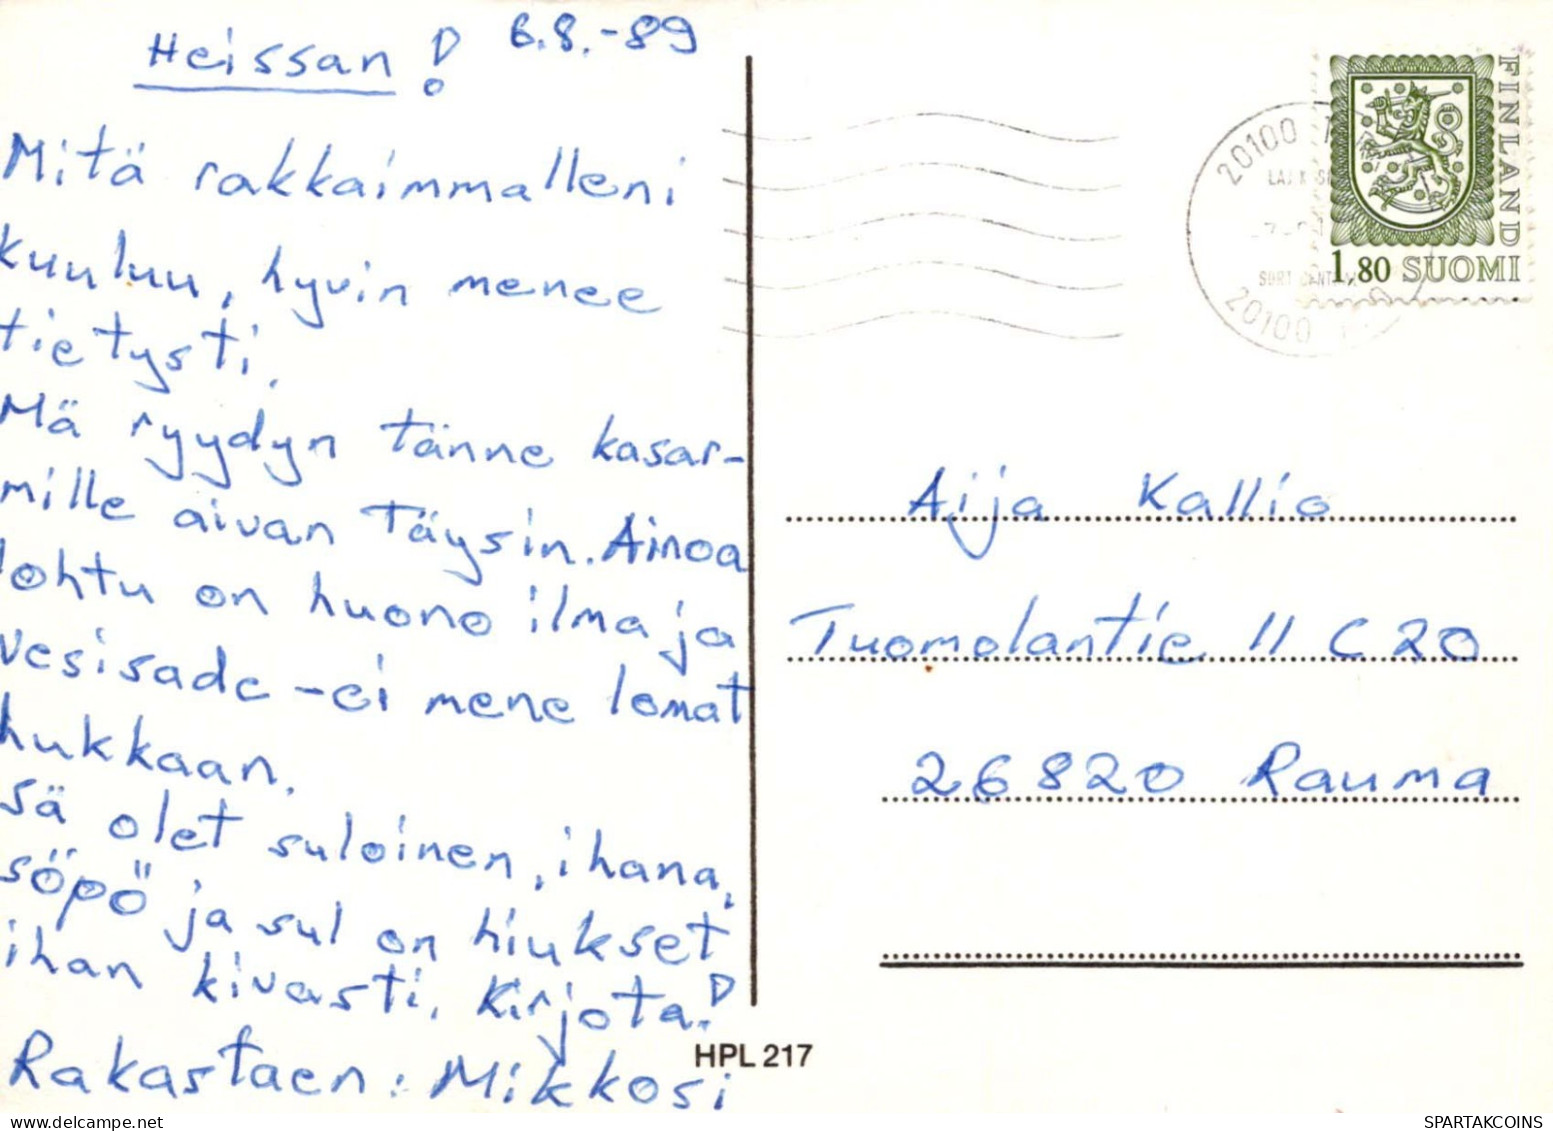 Heissan! 6.8.-89
Mitä rakkaimmalleni
kuuluu, hyvin menee
tietysti.
Mä ryydyn tänne kasar-
mille aivan täysin. Ainoa
lohtu on huono ilma ja
vesisade - ei mene lomat
hukkaan.
Sä olet suloinen, ihana,
söpö ja sul on hiukset
ihan kivasti. Kirjota!
Rakastaen: Mikkosi
HPL 217
20100
20100
FINLAND
1.80 SUOMI
Aija Kallio
Tuomolantie 11 C 20
26820 Rauma
delcampe.net
SPARTAKCOINS